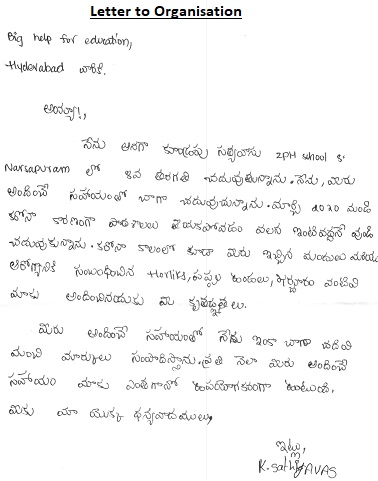 Letter to Organisation
Big help for education,
Hyderabad వారికి.
అయ్యా!,
నేను అనగా కూండ్రపు సత్యవాసు ZPH school
Narsapuram లో 8వ తరగతి చదువుతున్నాను. నేను, మీరు
అందించే సహాయంతో బాగా చదువుచున్నాను. మార్చి 2020 నుండి
కరోనా కారణంగా పాఠశాలలు తెరవకపోవడం వలన ఇంటివద్దనే వుండి
చదువుకున్నాను. కరోనా కాలంలో కూడా మీరు ఇచ్చిన మందులు మరియు
ఆరోగ్యానికి సంబంధించిన Horliks, పప్పు ఉండలు, ఖర్జూరం వంటివి
మాకు అందించినందుకు మీ కృతజ్ఞతలు.
మీరు అందించే సహాయంతో నేను ఇంకా బాగా చదివి
మంచి మార్కులు సంపాదిస్తాను. ప్రతి నెలా మీరు అందించే
సహాయం మాకు ఎంతగానో ఉపయోగకరంగా ఉంటుంది.
మీకు మా యొక్క ధన్యవాదములు,
ఇట్లు,
K. sathyAVAS